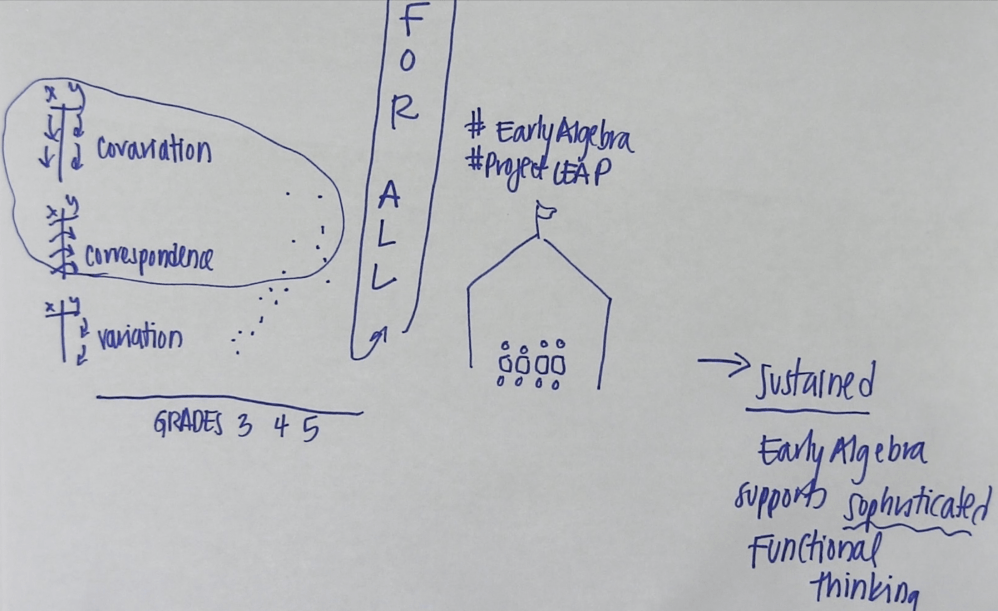 x y
covariation
x y
correspondence
x y
variation
GRADES 3 4 5
F
O
R
A
L
L
# EarlyAlgebra
#Project LEAP
→ Sustained
Early Algebra
supports sophisticated
Functional
thinking